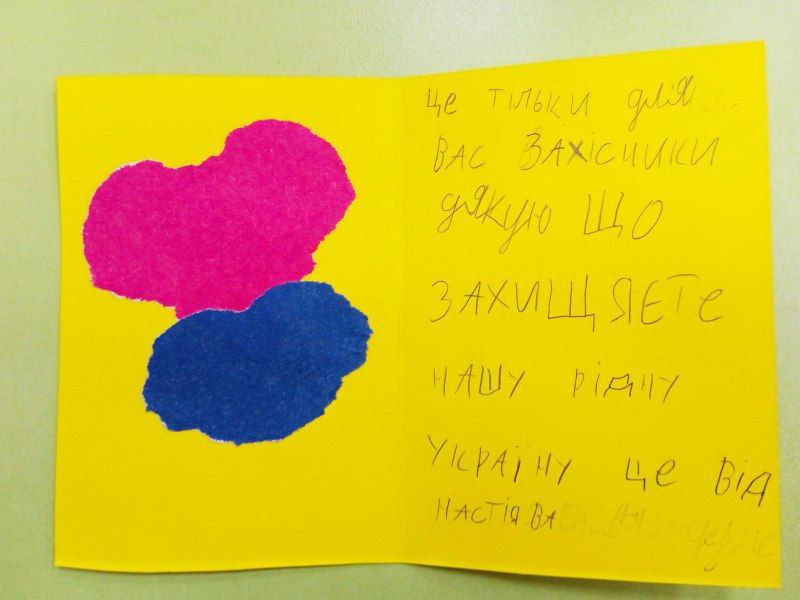 ЦЕ ТІЛЬКИ ДЛЯ
ВАС ЗАХІСНИКИ
ДЯКУЮ ЩО
ЗАХИЩЯЄТЕ
НАШУ РІДНУ
УКРАЇНУ ЦЕ ВІД
НАСТІЯ ВА